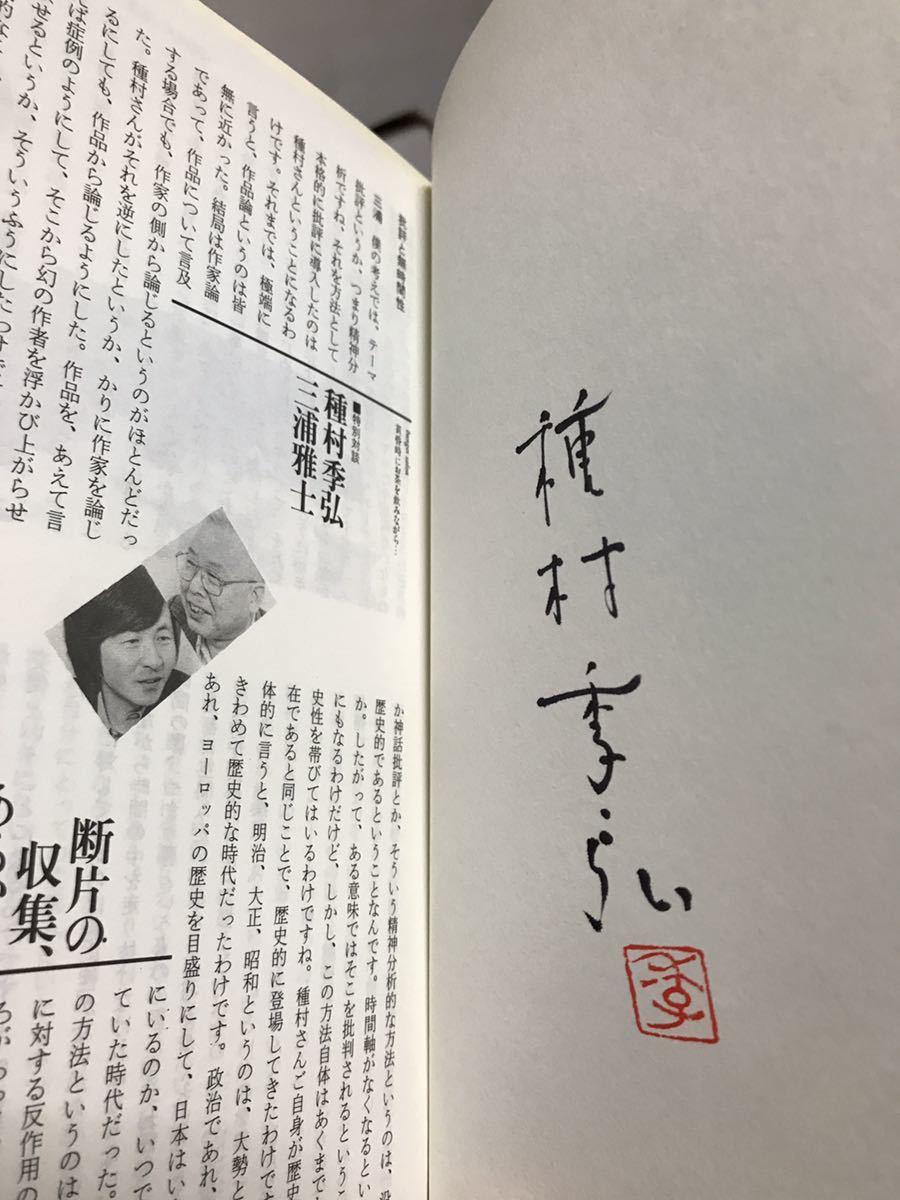 種村季弘
季
批評と無時間性
三浦　僕の考えでは、テーマ
批評というか、つまり精神分
析ですね、それを方法として
本格的に批評に導入したのは
種村さんということになるわ
けです。それまでは、極端に
言うと、作品論というのは皆
無に近かった。結局は作家論
であって、作品について言及
する場合でも、作家の側から論じるというのがほとんどだっ
た。種村さんがそれを逆にしたというか、かりに作家を論じ
るにしても、作品から論じるようにした。作品を、あえて言
ば症例のようにして、そこから幻の作者を浮かび上がらせ
せるというか、そういうふうにしたわけで
黄昏時にお茶を飲みながら…
■特別対談
種村季弘
三浦雅士
断片の
収集、
か神話批評とか、そういう精神分析的な方法というのは、
歴史的であるということなんです。時間軸がなくなるとい
か。したがって、ある意味ではそこを批判されるというこ
にもなるわけだけど、しかし、この方法自体はあくまで
史性を帯びてはいるわけですね。種村さんご自身が歴
在であると同じことで、歴史的に登場してきたわけで
体的に言うと、明治、大正、昭和というのは、大勢と
きわめて歴史的な時代だったわけです。政治であれ、
あれ、ヨーロッパの歴史を目盛りにして、日本はい
にいるのか、いつで
ていた時代だった。
の方法というのは
に対する反作用の